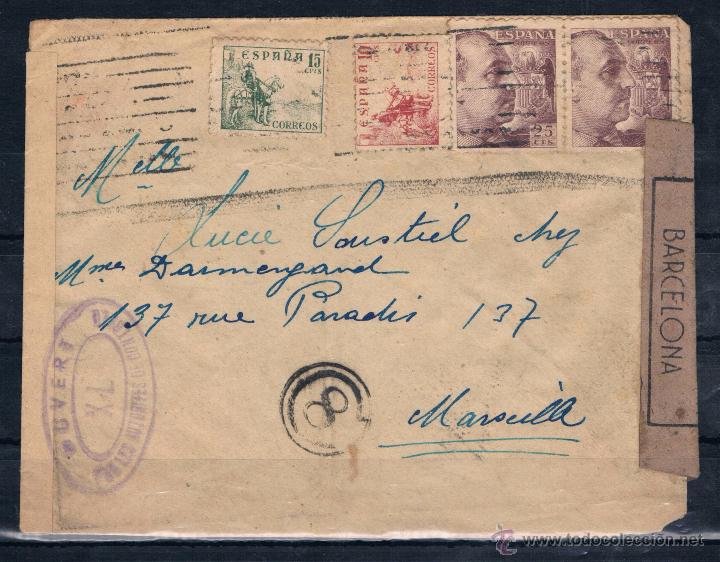 ESPAÑA 15
CTS
CORREOS
ESPAÑA 10
CORREOS
ESPAÑA
CORREOS
25
CTS.
ESPAÑA
Melle
Lucie Soustiel chez
Mme Darmengand
137 rue Paradis 137
Marseille
BARCELONA
OUVERT
8
www.todocoleccion.net